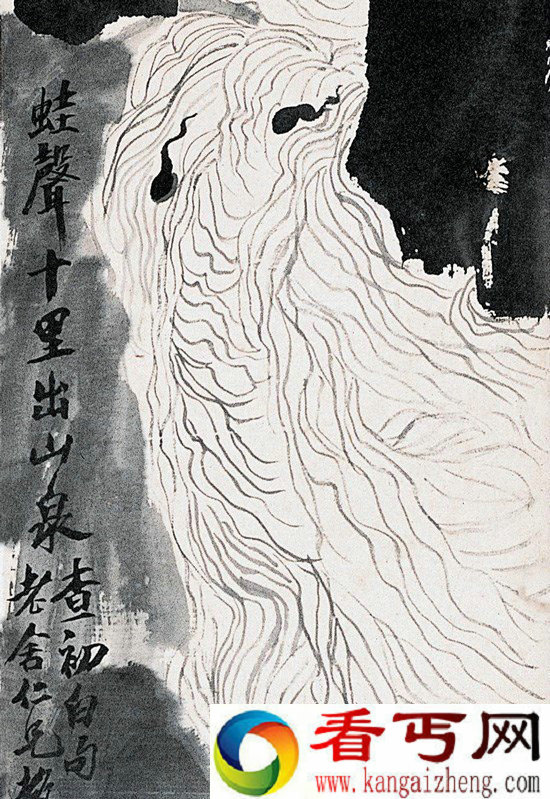 蛙聲十里出山泉
查初白句
老舍仁兄
看丐网
www.kangaizheng.com